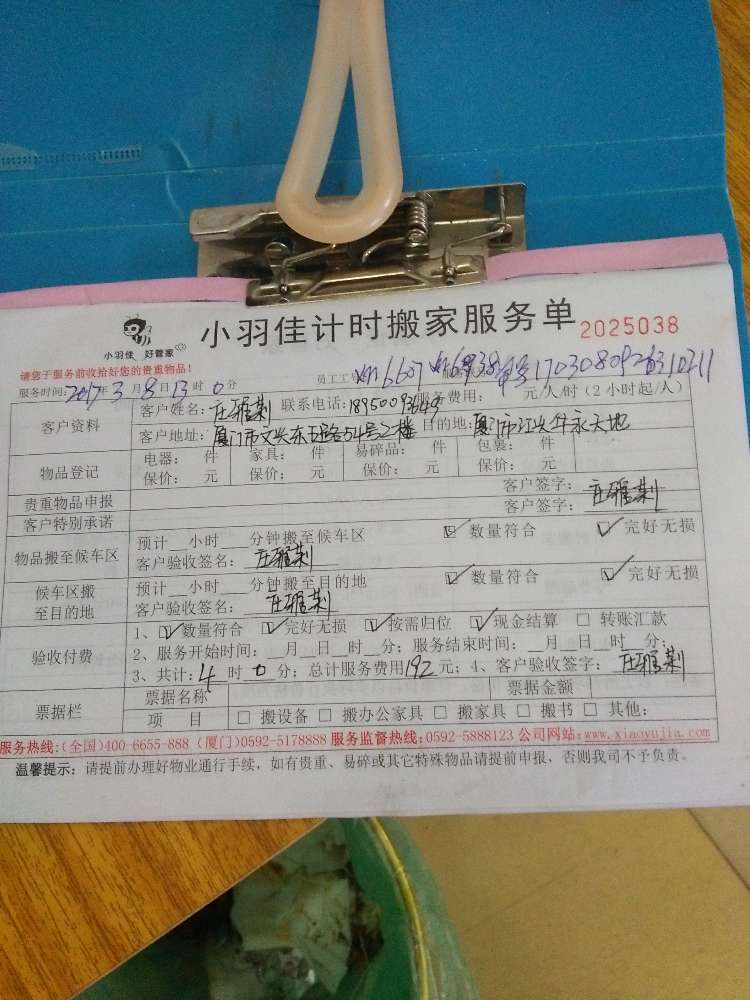 小羽佳 好管家
小羽佳计时搬家服务单 2025038
请您于服务前收拾好您的贵重物品!
服务时间:2017年3月8日13时0分 员工工号 6607 服务费用: 元/人/时(2小时起/人)
客户资料
客户姓名:庄 联系电话:18950093649
客户地址:厦门市文兴东 54号二楼 目的地:厦门市江头华永天地
物品登记
电器: 件 家具: 件 易碎品: 件 包裹: 件
保价: 元 保价: 元 保价: 元 保价: 元
贵重物品申报 客户签字:
客户特别承诺 客户签字:
物品搬至候车区
预计__小时__分钟搬至候车区 ☑ 数量符合 ☑ 完好无损
客户验收签名:
候车区搬至目的地
预计__小时__分钟搬至目的地 ☑ 数量符合 ☑ 完好无损
客户验收签名:
验收付费
1、☑数量符合 ☑完好无损 ☑按需归位 ☑现金结算 □ 转账汇款
2、服务开始时间:__月__日__时__分;服务结束时间:__月__日__时__分;
3、共计:4时0分;总计服务费用192元;4、客户验收签字:
票据栏
票据名称 票据金额
项 目 □ 搬设备 □ 搬办公家具 □ 搬家具 □ 搬书 □ 其他:
服务热线:(全国)400-6655-888 (厦门)0592-5178888 服务监督热线:0592-5888123 公司网站:www.xiaoyujia.com
温馨提示:请提前办理好物业通行手续,如有贵重、易碎或其它特殊物品请提前申报,否则我司不予负责。